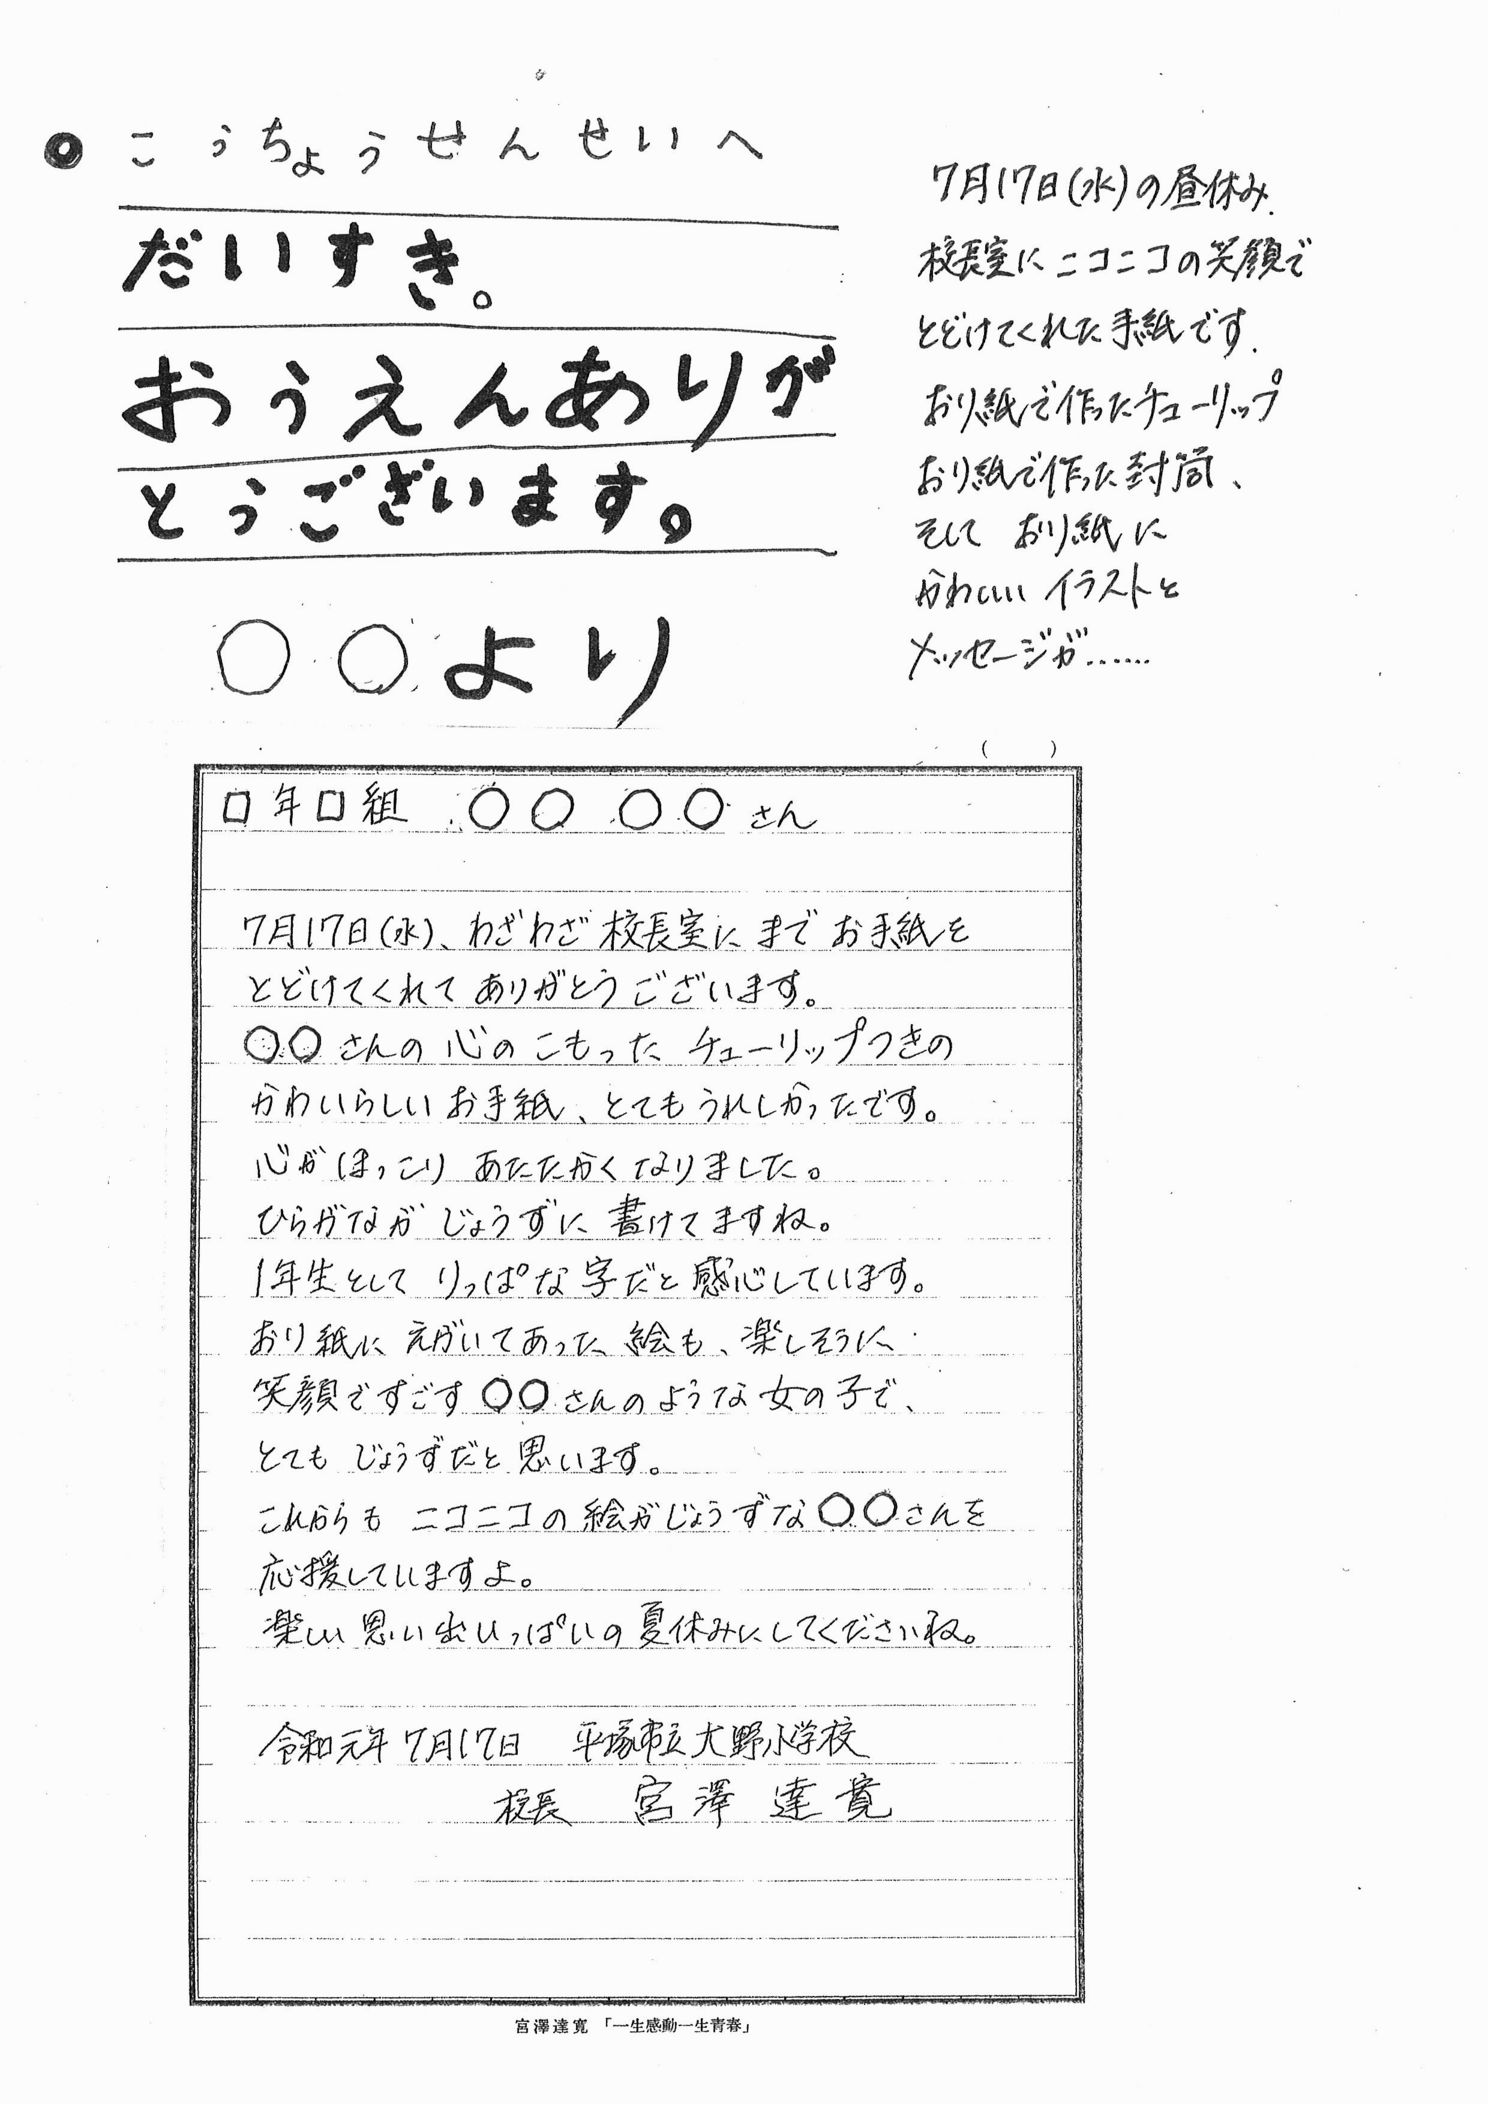 ◎ こうちょうせんせいへ
だいすき。
おうえんありが
とうございます。
○○より
7月17日(水)の昼休み、
校長室にニコニコの笑顔で
とどけてくれた手紙です.
おり紙で作ったチューリップ
おり紙で作った封筒、
そして おり紙に
かわいい イラストと
メッセージが……
( )
□年□組 ○○ ○○さん
7月17日(水)、わざわざ校長室にまで お手紙を
とどけてくれて ありがとう ございます。
○○さんの 心の こもった チューリップつきの
かわいらしい お手紙、とてもうれしかったです。
心が ほっこり あたたかく なりました。
ひらがなが じょうずに 書けてますね。
1年生として りっぱな 字だと 感心しています。
おり紙に えがいてあった 絵も、楽しそうに
笑顔ですごす ○○さんのような 女の子で、
とても じょうずだと 思います。
これからも ニコニコの 絵がじょうずな○○さんを
応援していますよ。
楽しい 思い出いっぱいの 夏休みにしてくださいね。
令和元年 7月17日 平塚市立大野小学校
校長 宮澤 達寛
宮澤達寛 「一生感動一生青春」